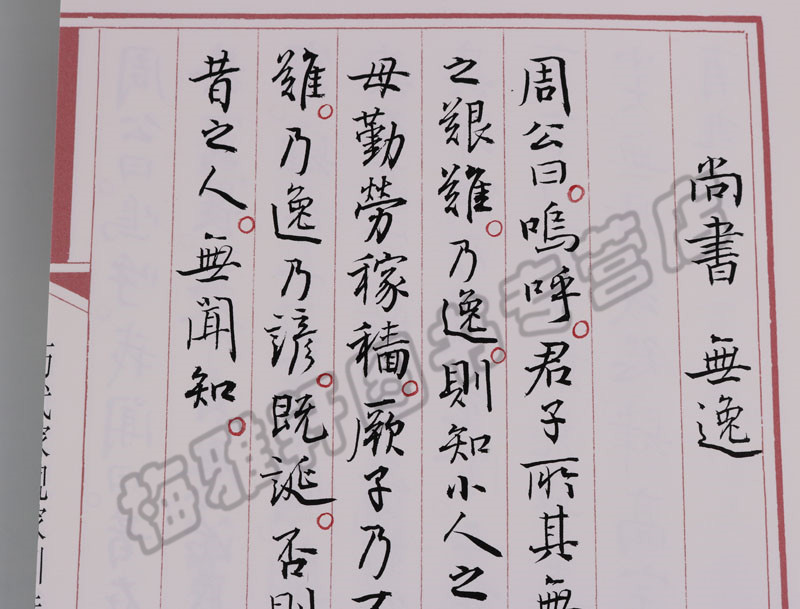 尚書 無逸
周公曰。嗚呼。君子所其無
之艱難。乃逸。則知小人之
母勤勞稼穡。厥子乃不
難。乃逸乃諺。既誕。否則
昔之人。無聞知。
梅雅轩图书专营店